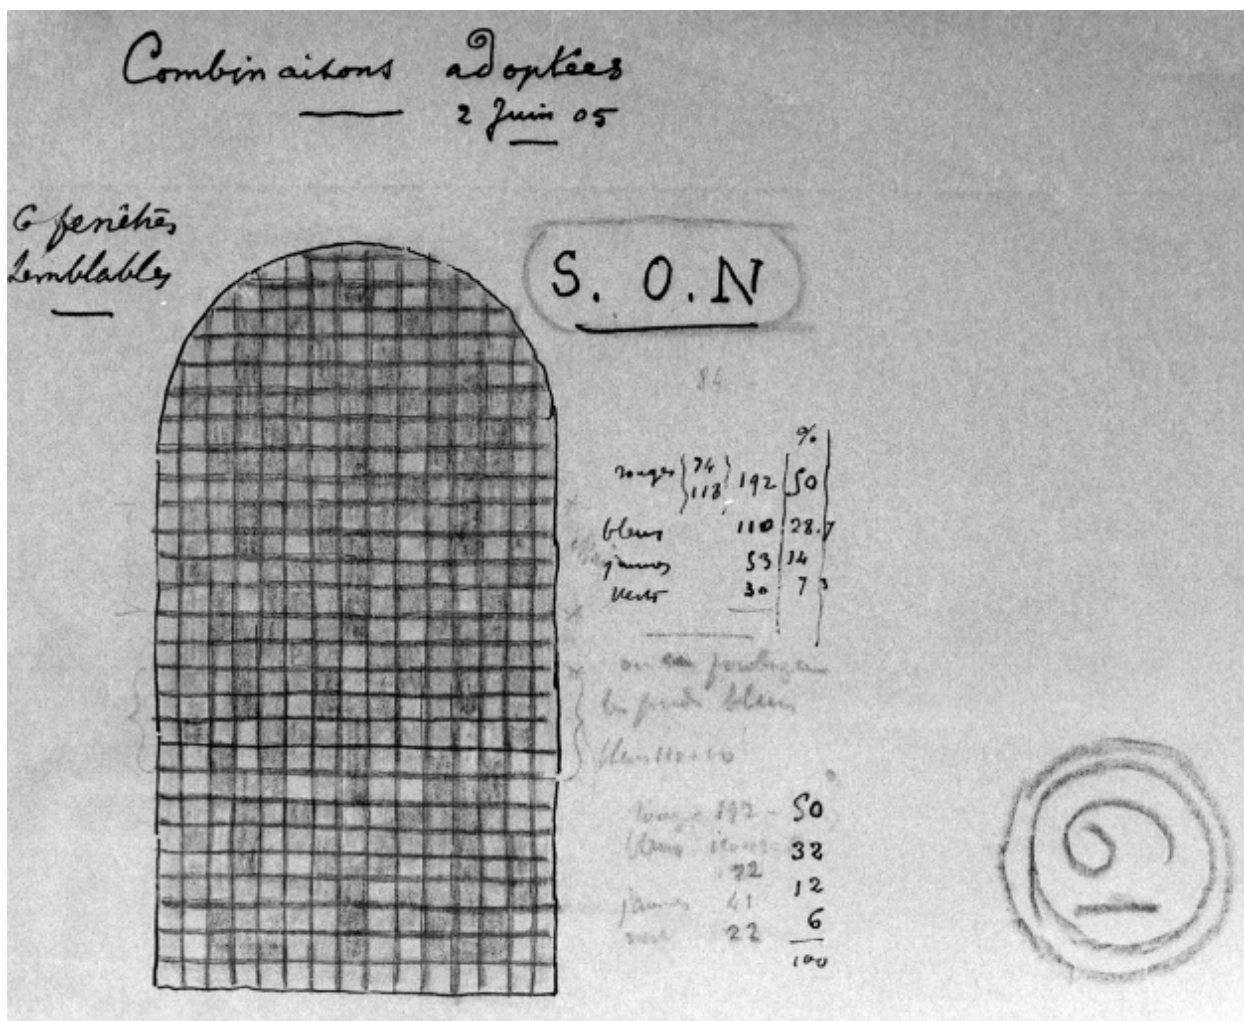 Combinaisons adoptées
2 Juin 05
6 fenêtres
semblables
S. O. N
84
%
rouges { 74 118 } 192 50
bleus 110 28.7
jaunes 53 14
verts 30 7 3
les grands bleus
rouge 192 - 50
bleus 32
22
jaunes 41 12
vert 22 6
100